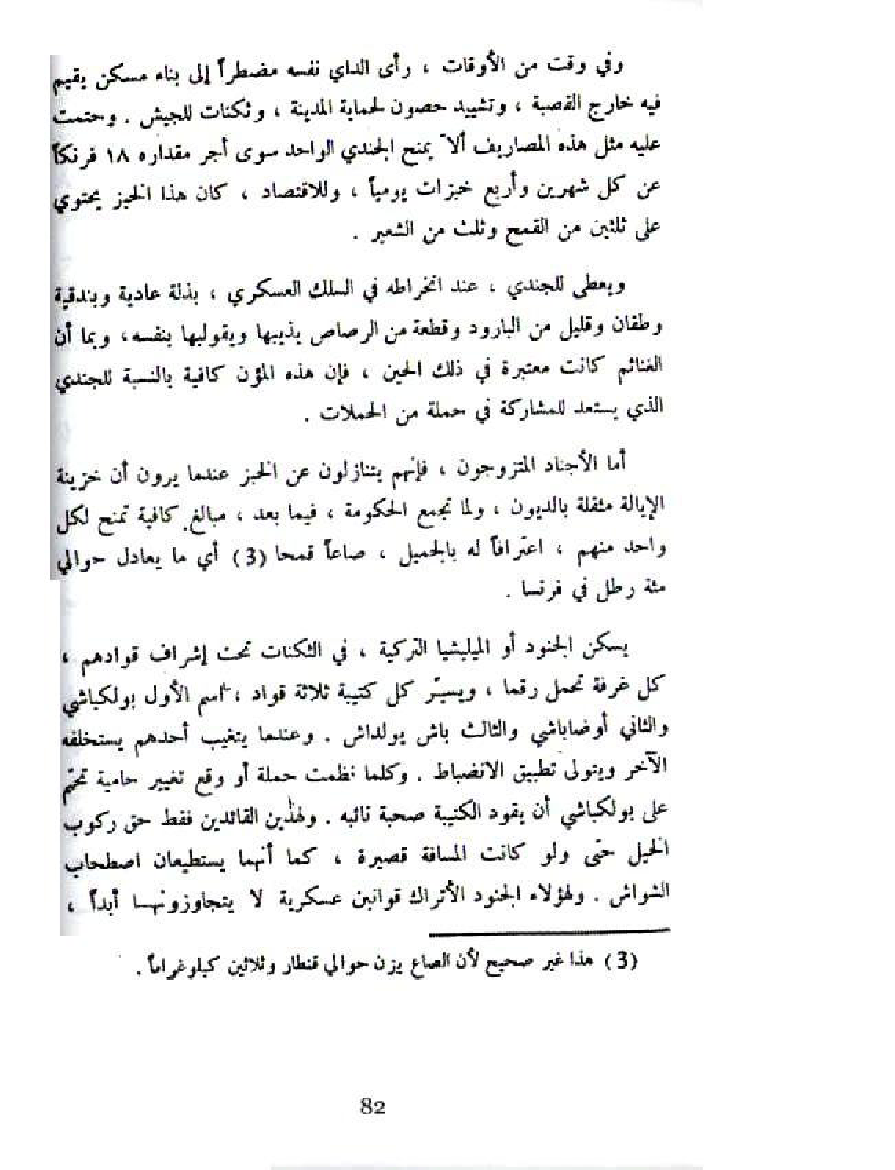 وفي وقت من الأوقات ، رأى الداي نفسه مضطراً إلى بناء مسكن يقيم
فيه خارج القصبة ، وتشييد حصون لحماية المدينة ، وثكنات للجيش . وحتمت
عليه مثل هذه المصاريف ألاّ يمنح الجندي الواحد سوى أجر مقداره ١٨ فرنكاً
عن كل شهرين وأربع خبزات يومياً ، وللاقتصاد ، كان هذا الخبز يحتوي
على ثلثين من القمح وثلث من الشعير .
ويعطى للجندي ، عند انخراطه في السلك العسكري ، بذلة عادية وبندقية
وطقان وقليل من البارود وقطعة من الرصاص يذيبها ويقولبها بنفسه، وبما أن
الغنائم كانت معتبرة في ذلك الحين ، فإن هذه المؤن كافية بالنسبة للجندي
الذي يستعد للمشاركة في حملة من الحملات .
أما الأجناد المتزوجون ، فإنهم يتنازلون عن الخبز عندما يرون أن خزينة
الإيالة مثقلة بالديون ، ولما تجمع الحكومة ، فيما بعد ، مبالغ كافية تمنح لكل
واحد منهم ، اعترافاً له بالجميل ، صاعاً قمحا (3) أي ما يعادل حوالي
مئة رطل في فرنسا .
يسكن الجنود أو الميليشيا التركية ، في الثكنات تحت إشراف قوادهم ،
كل غرفة تحمل رقما ، ويسيّر كل كتيبة ثلاثة قواد ، اسم الأول بولكباشي
والثاني أوضاباشي والثالث باش يولداش . وعندما يتغيب أحدهم يستخلفه
الآخر ويتولى تطبيق الانضباط . وكلما نظمت حملة أو وقع تغيير حامية تحتم
على بولكباشي أن يقود الكتيبة صحبة نائبه . ولهذين القائدين فقط حق ركوب
الخيل حتى ولو كانت المسافة قصيرة ، كما أنهما يستطيعان اصطحاب
الشواش . ولهؤلاء الجنود الأتراك قوانين عسكرية لا يتجاوزونها أبداً ،
(3) هذا غير صحيح لأن الصاع يزن حوالي قنطار وثلاثين كيلوغراماً .
82